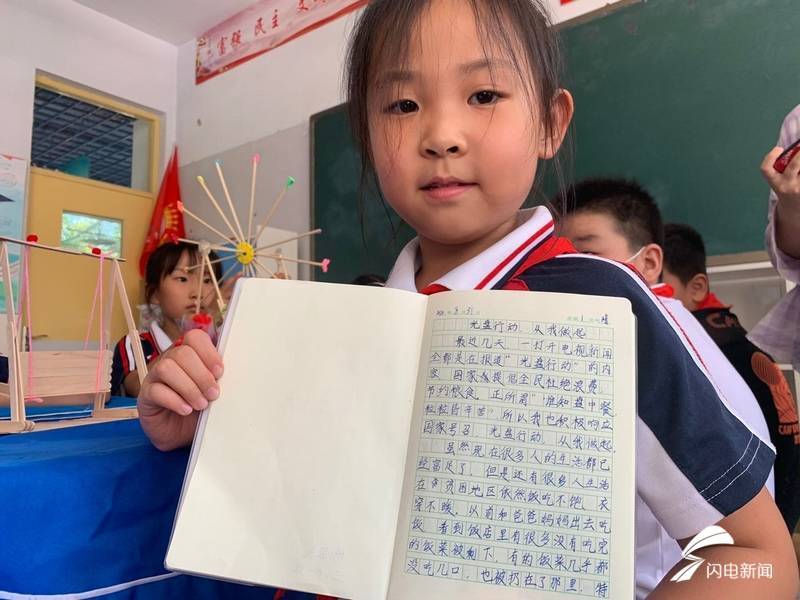 富强 民主 文
光盘行动,从我做起
最近几天,一打开电视新闻
全都是在报道"光盘行动"的内
容,国家在提倡全民杜绝浪费,
节约粮食。正所谓"谁知盘中餐,
粒粒皆辛苦"所以我也积极响应
国家号召,光盘行动,从我做起。
虽然现在很多人的生活都已
经富足了,但是还有很多人生活
在贫困地区依然饭吃不饱,衣
穿不暖。以前和爸爸妈妈出去吃
饭,看到饭店里有很多没有吃完
的饭菜被剩下,有的饭菜几乎都
没吃几口,也被扔在了那里,特
闪电新闻